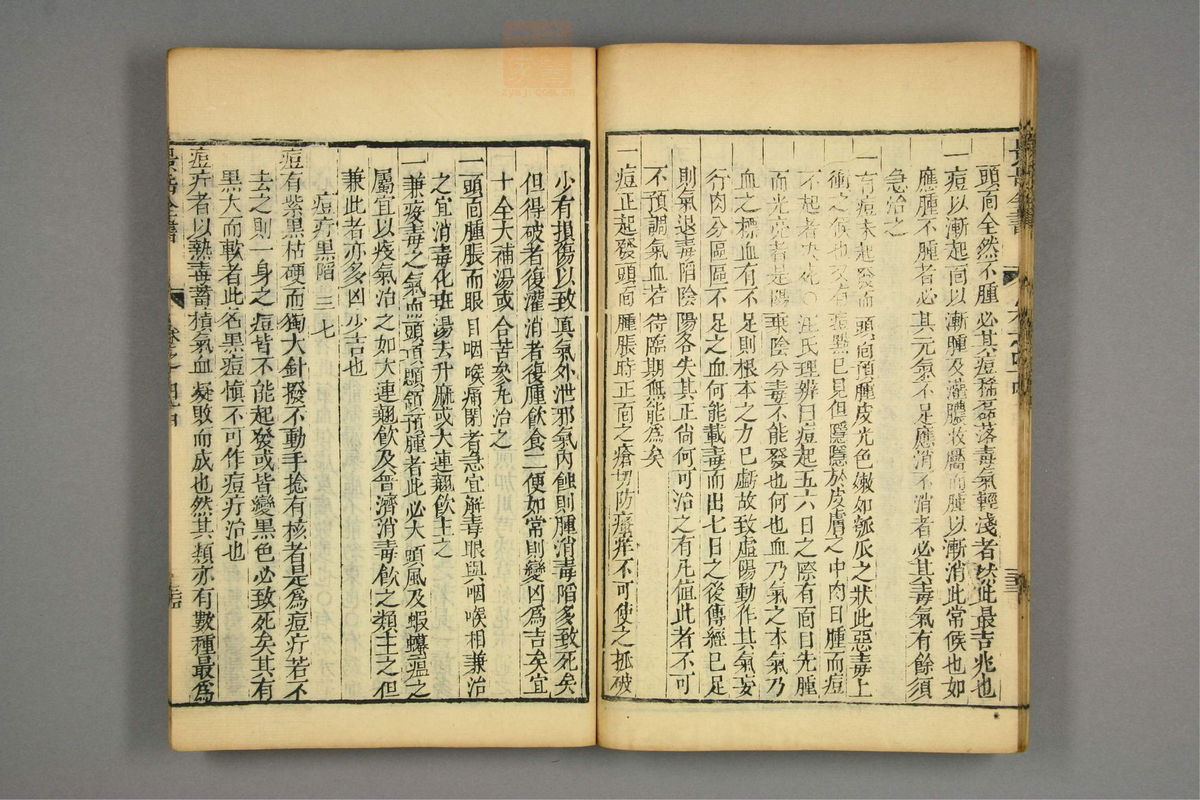 頭面全然不腫必其痘稀磊落毒氣輕淺者然此最吉兆也
一痘以漸起面以漸腫及灌膿收靨而腫以漸消此常候也如
應腫不腫者必其元氣不足應消不消者必其毒氣有餘須
急治之
一有痘未起發而頭面預腫皮光色嫩如瓠瓜之狀此惡毒上
衝之候也又有痘點已見但隱隱於皮膚之中肉日腫而痘
不起者決死〇汪氏理辨曰痘起五六日之際有面目先腫
而光亮者是陽乘陰分毒不能發也何也血乃氣之本氣乃
血之標血有不足則根本之力已虧故致虛陽動作其氣妄
行肉分區區不足之血何能載毒而出七日之後傳經已足
則氣退毒陷陰陽各失其正尚何可治之有凡値此者不可
不預調氣血若待臨期無能爲矣
一痘正起發頭面腫脹時正面之瘡切防瘙痒不可使之抓破
少有損傷以致真氣外泄邪氣內蝕則腫消毒陷多致死矣
但得破者復灌消者復腫飲食二便如常則變凶爲吉矣宜
十全大補湯或合苦參丸治之
一頭面腫脹而眼目咽喉痛閉者急宜解毒眼與咽喉相兼治
之宜消毒化斑湯去升麻或大連翹飲主之
一兼疫毒之氣而頭項顋頷預腫者此必大頭風及蝦蟆瘟之
屬宜以疫氣治之如大連翹飲及普濟消毒飲之類主之但
兼此者亦多凶少吉也
痘疔黑陷 三七
痘有紫黑枯硬而獨大針撥不動手捻有核者是爲痘疔若不
去之則一身之痘皆不能起發或皆變黑色必致死矣其有
黑大而軟者此名黑痘愼不可作痘疔治也
痘疔者以熱毒蓄積氣血凝敗而成也然其類亦有數種最爲
景岳全書 卷之四十四